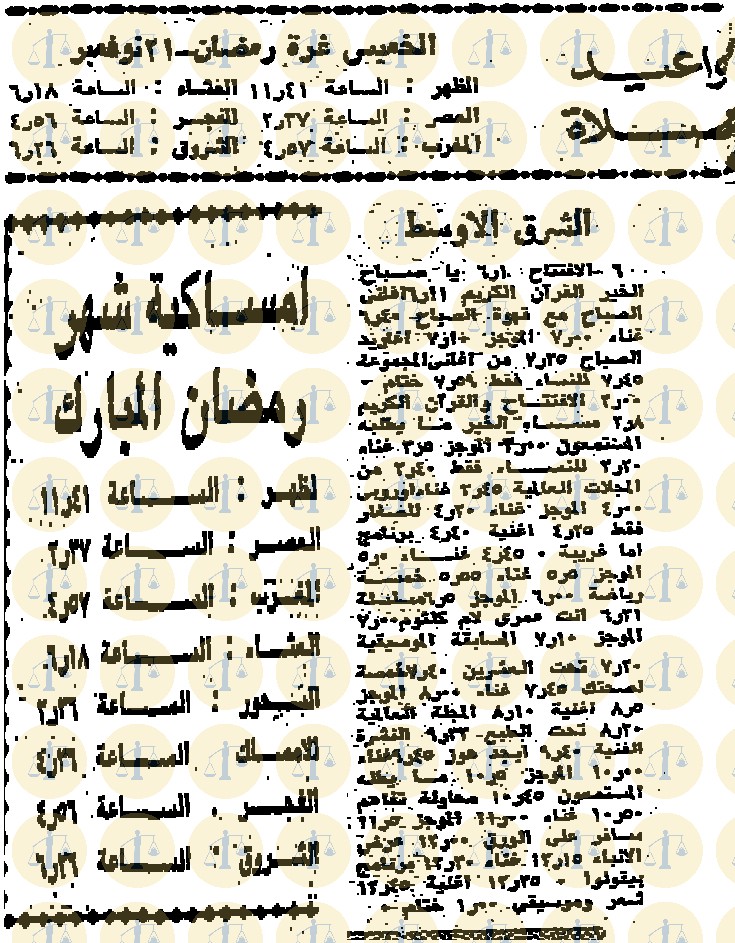 مواعيد
الصلاة
الخميس غرة رمضان - ٢١ نوفمبر
الظهر : الساعة ١١٫٤١ العشاء : الساعة ٦٫١٨
العصر : الساعة ٢٫٣٧ الفجر : الساعة ٤٫٥٦
المغرب : الساعة ٤٫٥٧ الشروق : الساعة ٦٫٢٦
الشرق الاوسط
٦٠٠ الافتتاح ٦٫١٠ يا صباح
الخير القرآن الكريم ٦٫١١ اغانى
الصباح مع قهوة الصباح ٦٫٤٠
غناء ٧٫٠٠ الموجز ٧٫١٠ اغاريد
الصباح ٧٫٢٥ من اغانى المجموعة
٧٫٤٥ للنساء فقط ٧٫٥٩ ختام -
٢٫٠٠ الافتتاح والقرآن الكريم
٢٫٨ مساء الخير ما يطلبه
المستمعون ٣٫٠٠ الموجز ٣٫٥ غناء
٣٫٢٠ للنساء فقط ٣٫٤٠ من
المجلات العالمية ٣٫٤٥ غناء اوروبى
٤٫٠٠ الموجز غناء ٤٫٢٠ للصغار
فقط ٤٫٢٥ اغنية ٤٫٤٠ برنامج
اما غريبة ٠ ٤٫٤٥ غناء ٥٫٠٠
الموجز ٥٫٥ غناء ٥٫٥٥ خمسة
رياضة ٦٫٠٠ الموجز ٦٫٥ مسلسلة
٦٫٢١ انت عمرى لام كلثوم ٧٫٠٠
الموجز ٧٫١٠ المسابقة الموسيقية
٧٫٢٠ تحت العشرين ٧٫٤٠ همسة
لصحتك ٧٫٤٥ غناء ٨٫٠٠ الموجز
٨٫٥ اغنية ٨٫١٠ المجلة العالمية
٨٫٢٠ تحت الطبع ٩٫٢٢ النشرة
الفنية ٩٫٤٠ ابجد هوز ٩٫٤٥ غناء
١٠٫٠٠ الموجز ١٠٫٥ ما يطلبه
المستمعون ١٠٫٤٥ محاولة تفاهم
١٠٫٥٠ غناء ١١٫٠٠ الموجز
مسافر على الورق ١٢٫٠٠ عرض
الانباء ١٢٫١٥ غناء ١٢٫٢٠ برنامج
بيقولوا ٠ ١٢٫٣٥ اغنية ١٢٫٤٥
شعر وموسيقى ١٫٠٠ ختام ٠
امساكية شهر
رمضان المبارك
لظهر : الساعة ١١٫٤١
العصر : الساعة ٢٫٣٧
المغرب : الساعة ٤٫٥٧
العشاء : الساعة ٦٫١٨
السحور : الساعة ٢٫٣٦
للامساك الساعة ٤٫٣٦
الفجر . الساعة ٤٫٥٦
الشروق : الساعة ٦٫٢٦